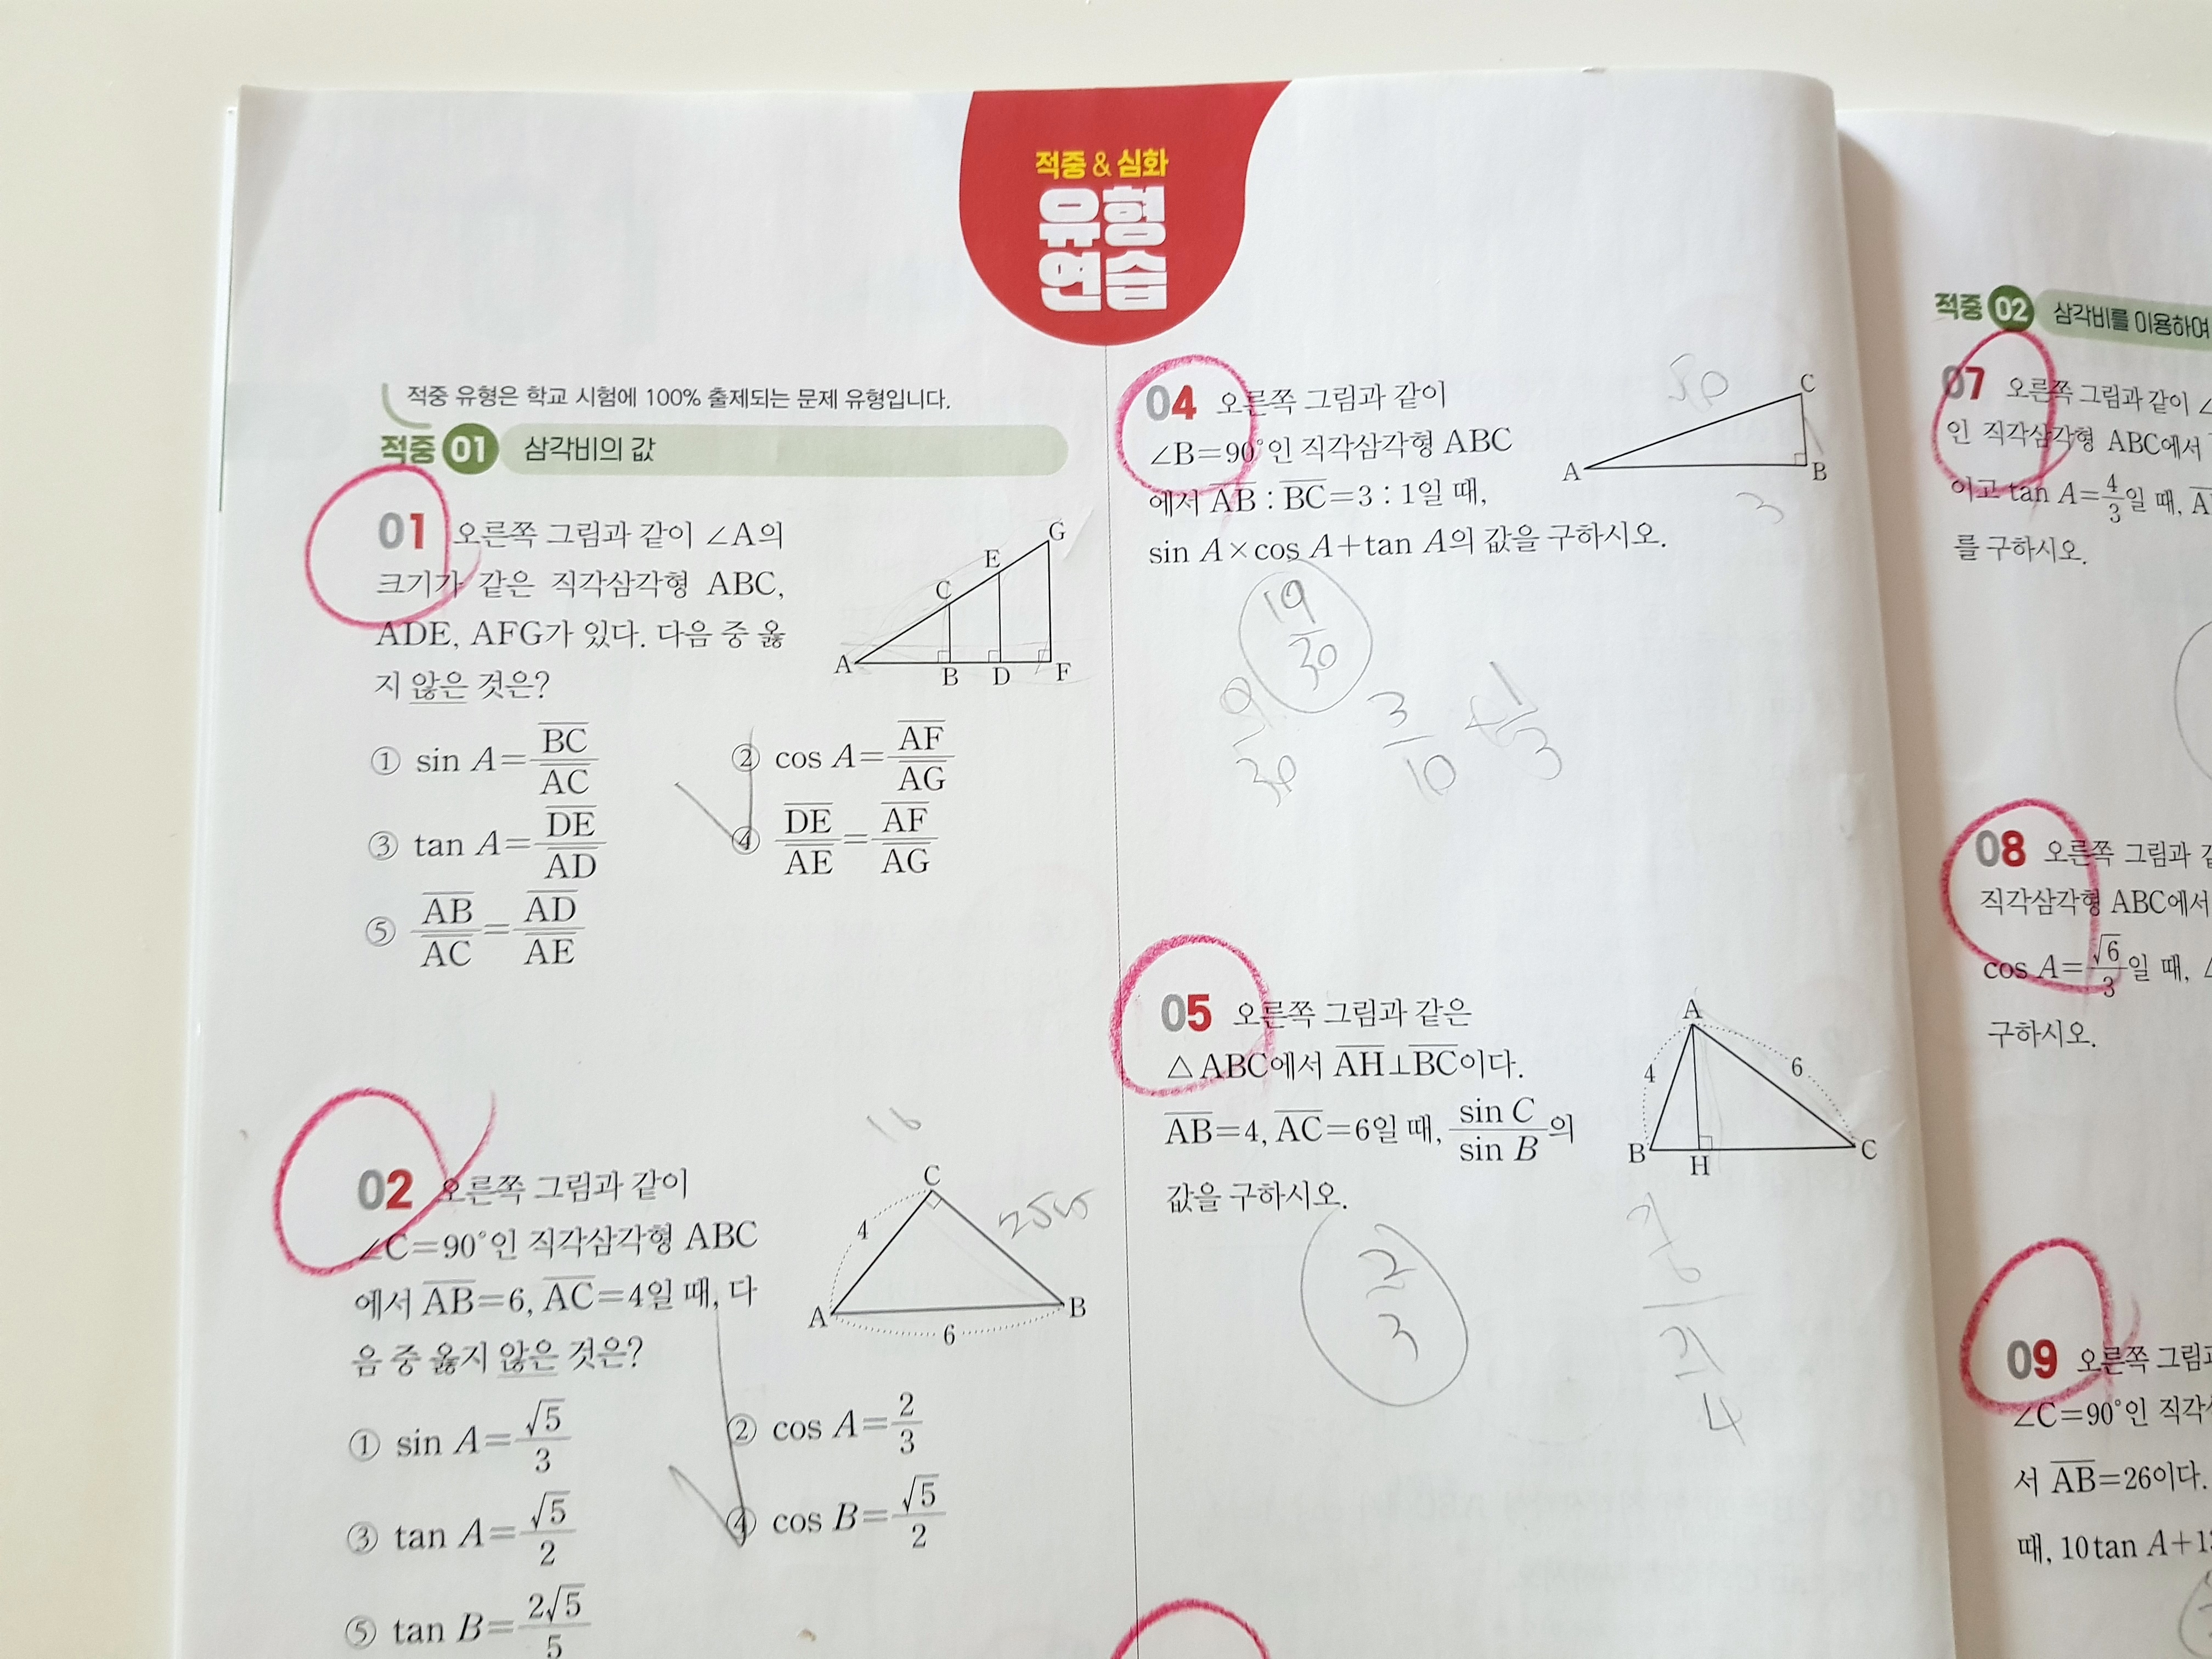 적중 & 심화
유형
연습
적중 유형은 학교 시험에 100% 출제되는 문제 유형입니다.
적중 01 삼각비의 값
01 오른쪽 그림과 같이 ∠A의
크기가 같은 직각삼각형 ABC,
ADE, AFG가 있다. 다음 중 옳
지 않은 것은?
A B C D E F G
① sin A=BC/AC ② cos A=AF/AG
③ tan A=DE/AD ④ DE/AE=AF/AG
⑤ AB/AC=AD/AE
02 오른쪽 그림과 같이
∠C=90°인 직각삼각형 ABC
에서 AB=6, AC=4일 때, 다
음 중 옳지 않은 것은?
16
C
4
A
6
B
① sin A=√5/3 ② cos A=2/3
③ tan A=√5/2 ④ cos B=√5/2
⑤ tan B=2√5/5
04 오른쪽 그림과 같이
∠B=90°인 직각삼각형 ABC
에서 AB : BC=3 : 1일 때,
sin A×cos A+tan A의 값을 구하시오.
C
A
B
3
19/30
9/30
3/10 + 1/3
05 오른쪽 그림과 같은
△ABC에서 AH⊥BC이다.
AB=4, AC=6일 때, sin C/sin B의
값을 구하시오.
A
4
6
B
H
C
2/3
적중 02 삼각비를 이용하여
07 오른쪽 그림과 같이 ∠
인 직각삼각형 ABC에서
이고 tan A=4/3일 때,
를 구하시오.
08 오른쪽 그림과
직각삼각형 ABC에서
cos A=√6/3일 때,
구하시오.
09 오른쪽
∠C=90°인
서 AB=26이다.
때, 10 tan A+